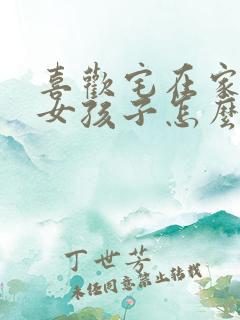 喜歡宅在家
女孩子怎麼
丁世芳
未經同意禁止轉載